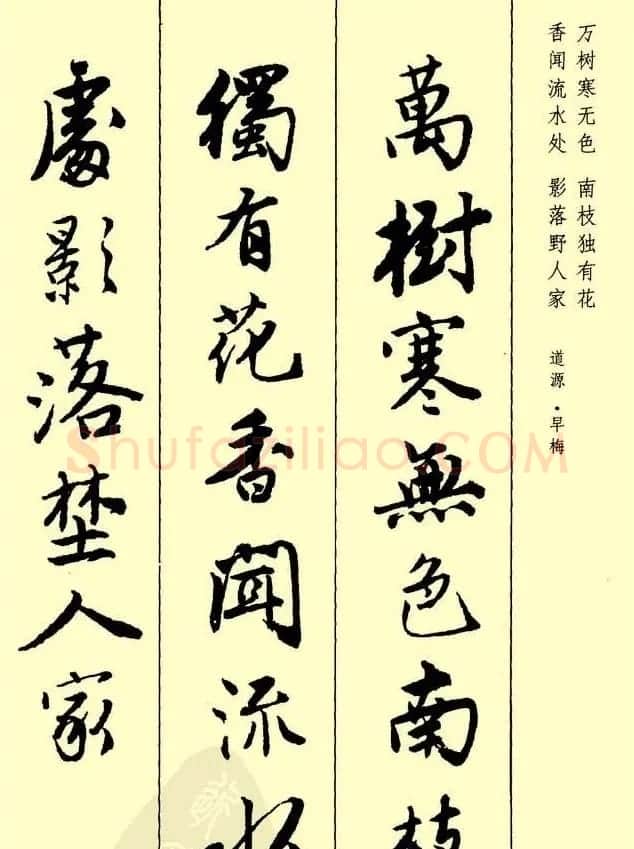 万树寒无色 南枝独有花
香闻流水处 影落野人家
道源·早梅
萬樹寒無色南枝
獨有花香聞流水
處影落埜人家
Shufaziliao.COM